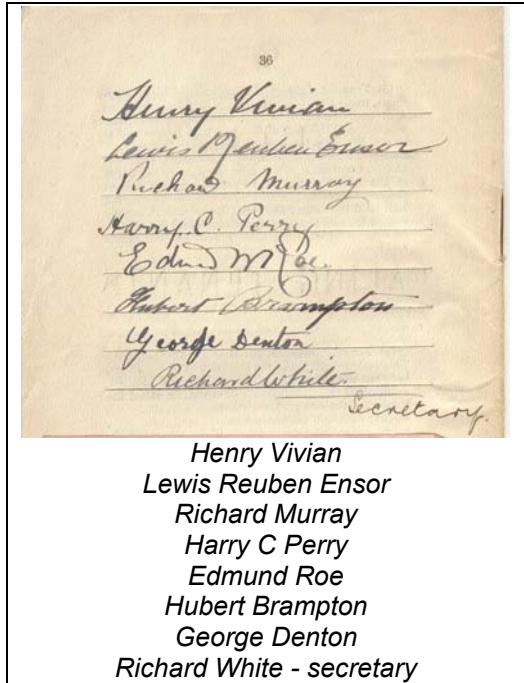 36
Henry Vivian
Lewis Reuben Ensor
Richard Murray
Harry. C. Perry
Edmd M Roe.
Hubert Brampton
George Denton
Richard White.
Secretary.
Henry Vivian
Lewis Reuben Ensor
Richard Murray
Harry C Perry
Edmund Roe
Hubert Brampton
George Denton
Richard White - secretary